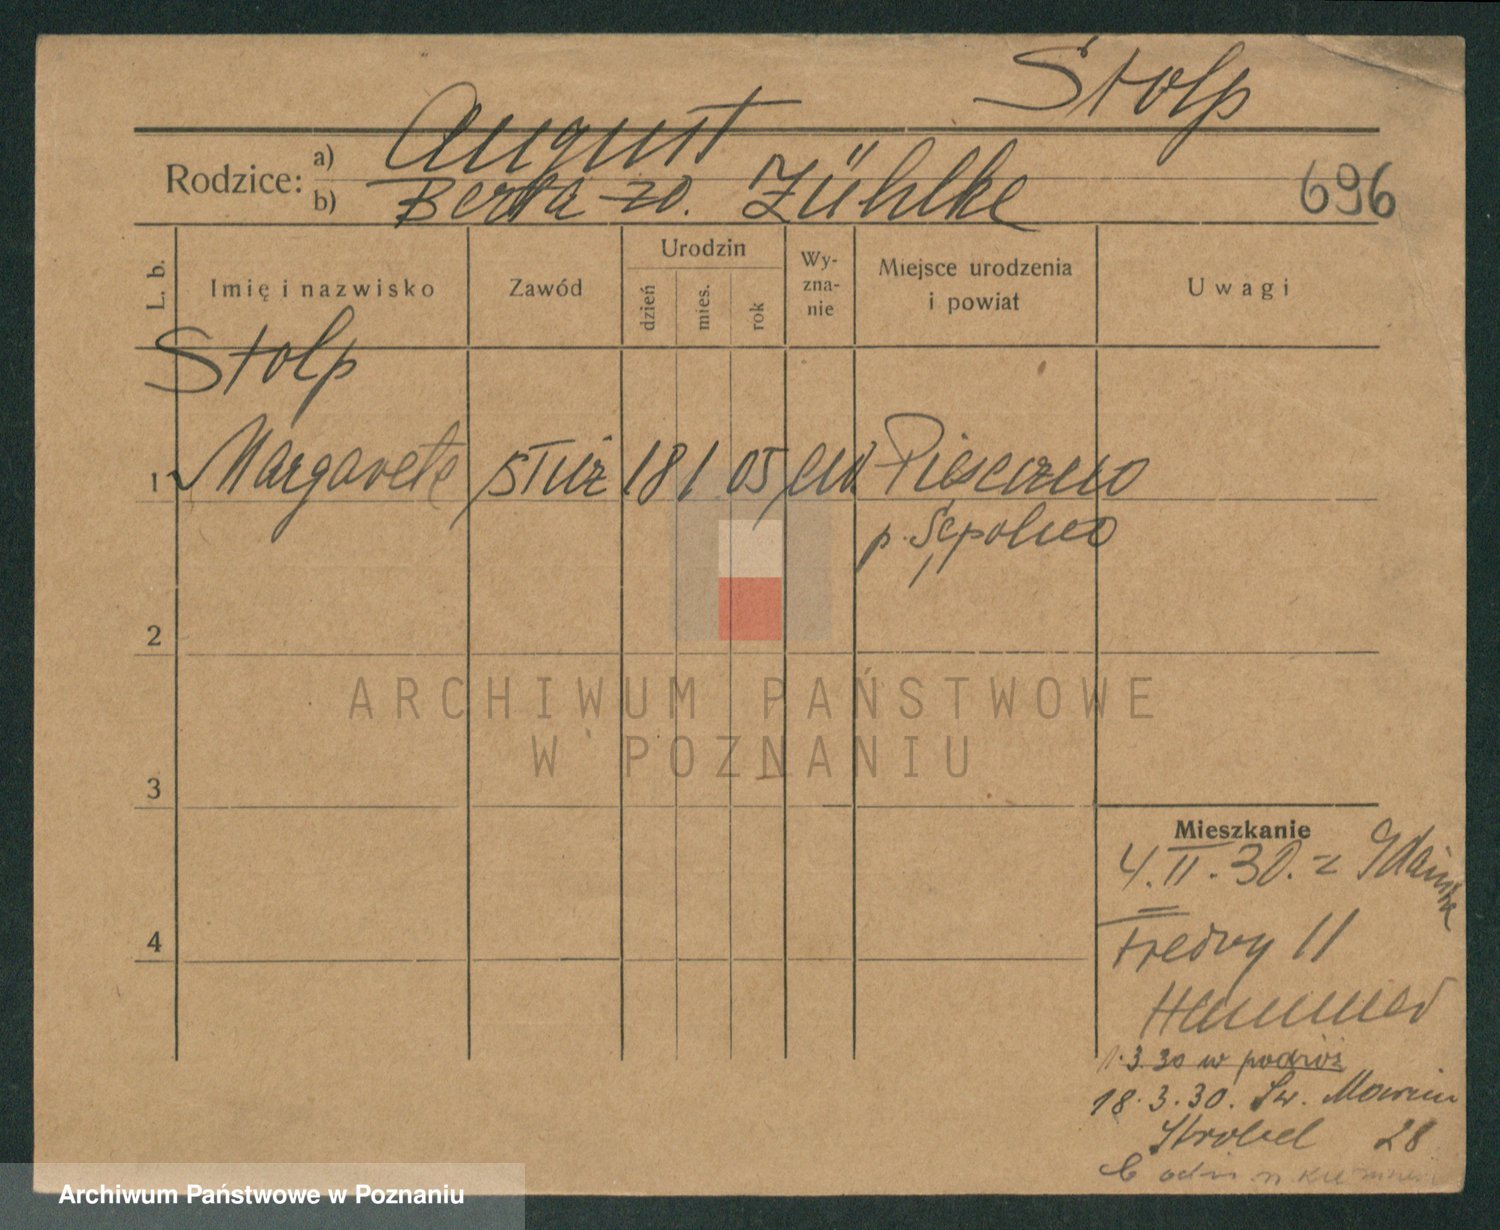 Stolp
Rodzice: a) August
b) Berta zd. Zühlke
696
L. b.
Imię i nazwisko
Zawód
Urodzin
dzień
mies.
rok
Wy-
zna-
nie
Miejsce urodzenia
i powiat
Uwagi
Stolp
1 Margarete służ 18 1 05 ew.
p. Sępolno
2
3
4
Mieszkanie
4.II.30. z Gdańska
Fredry 11
1.3.30 w podróż
18.3.30. Św. Marcin
Strobel 28
ARCHIWUM PAŃSTWOWE
W POZNANIU
Archiwum Państwowe w Poznaniu